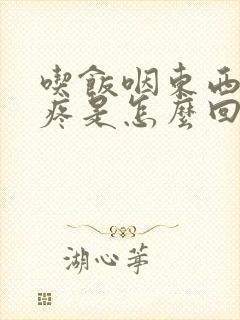 喫飯咽東西
疼是怎麼回
湖心茅